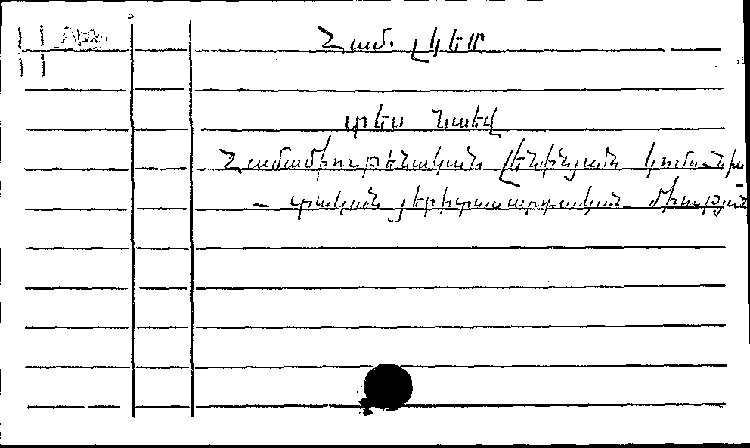 Համ. ԼԿԵՄ
տես նաև
Համամիութենական լենինյան կոմունիս
- տական յերիտասարդական միության